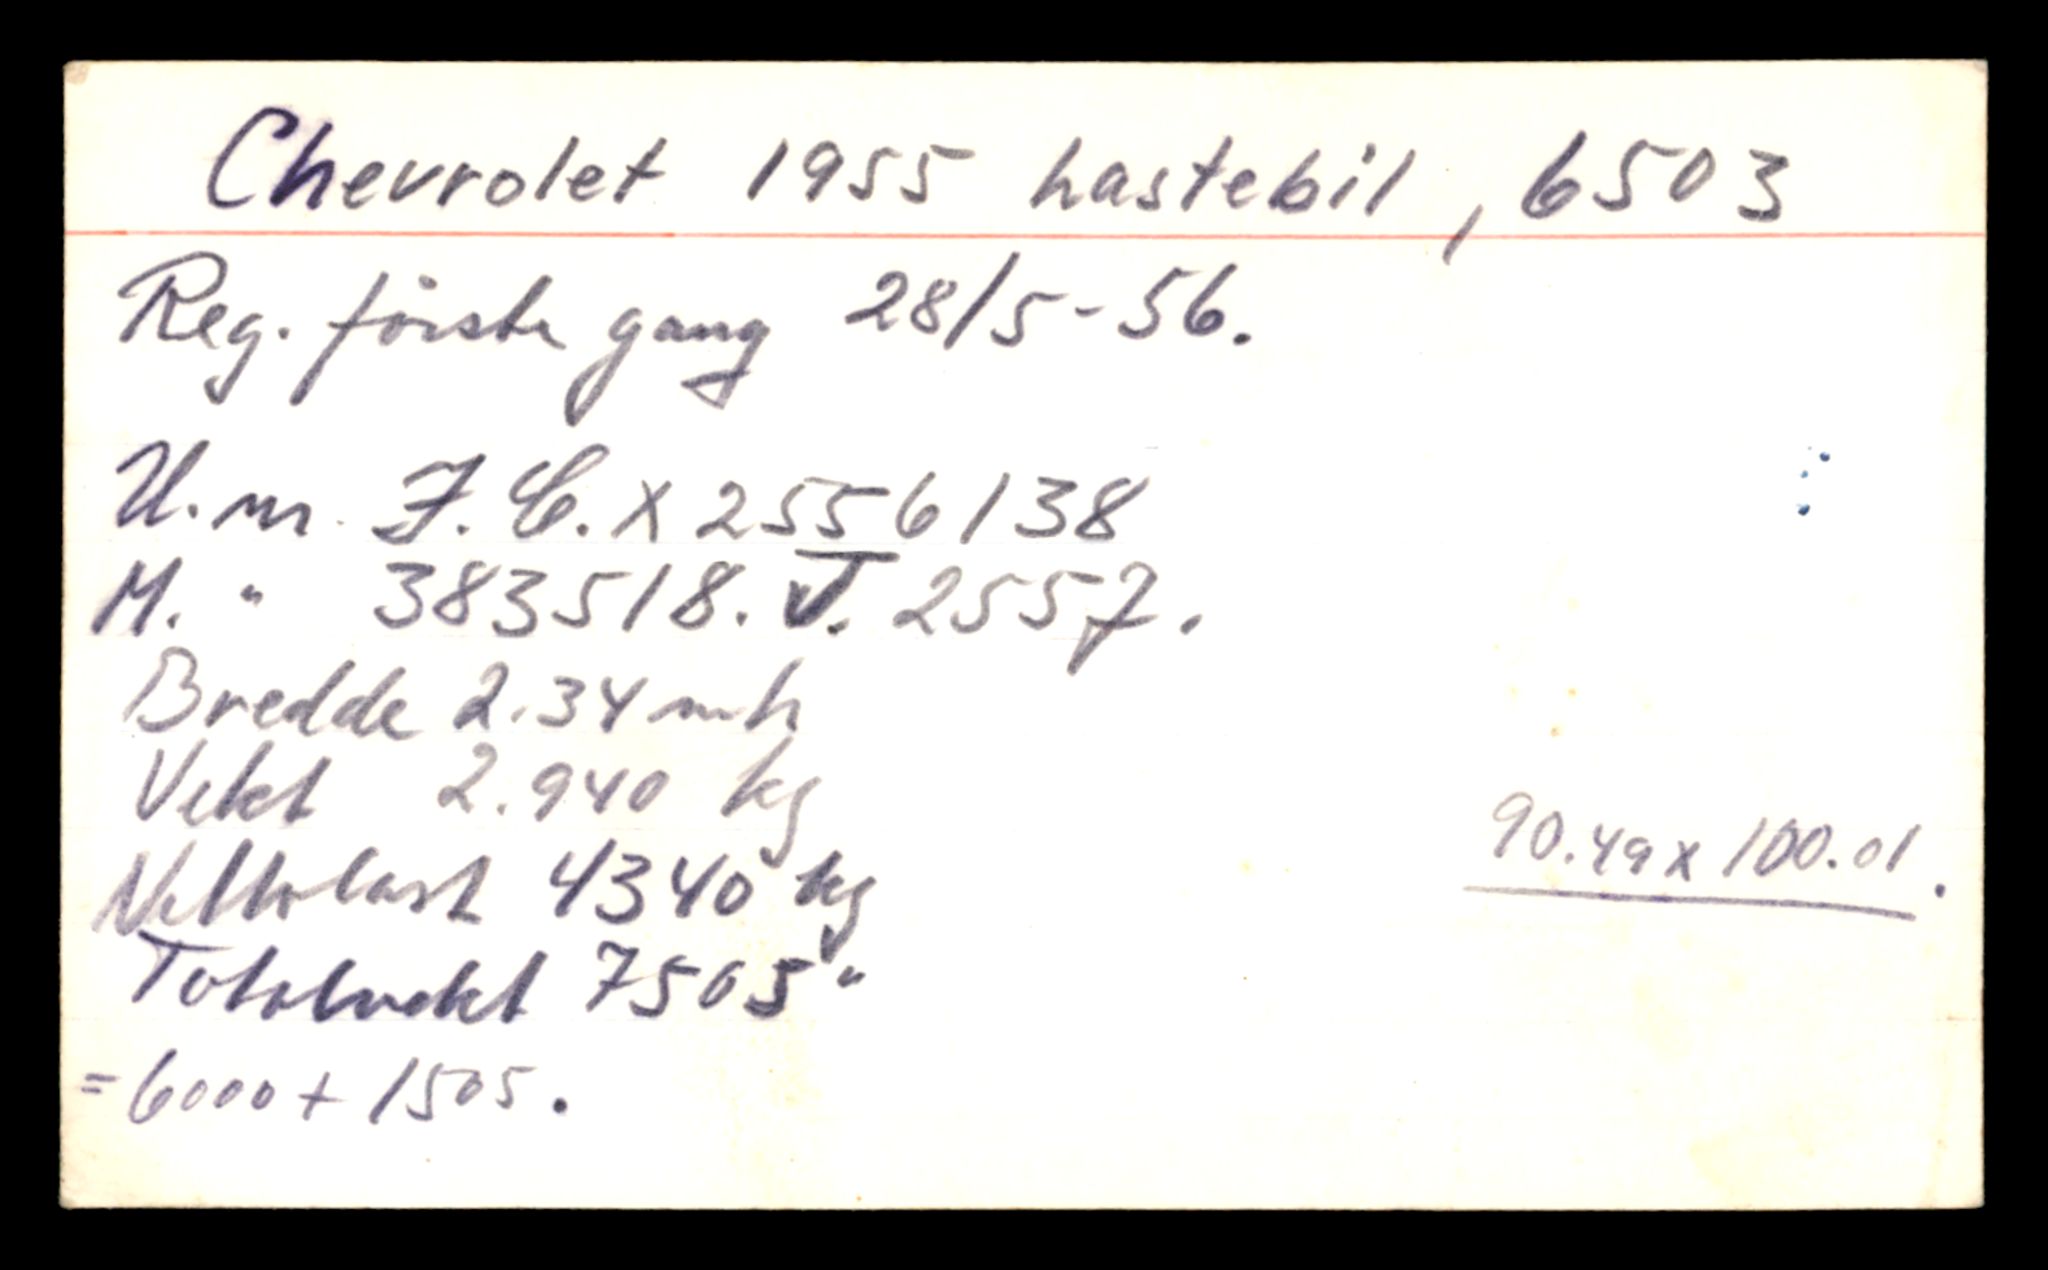 Chevrolet 1955 lastebil, 6503
Reg. første gang 28/5-56.
U. nr. F. C. X 2556138
M. " 383518. V. 2557.
Bredde 2.34 mtr
Vekt 2.940 kg
Nettolast 4340 kg
Totalvekt 7505 "
= 6000 + 1505.
90.49 x 100.01.